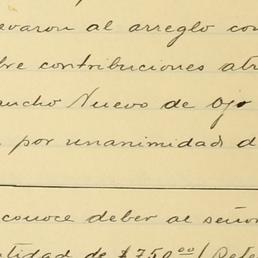 evaron al arreglo con
bre contribuciones atr
ancho Nuevo de Ojo
por unanimidad d
conoce deber al seño
tidad de $750 00/ (Sete